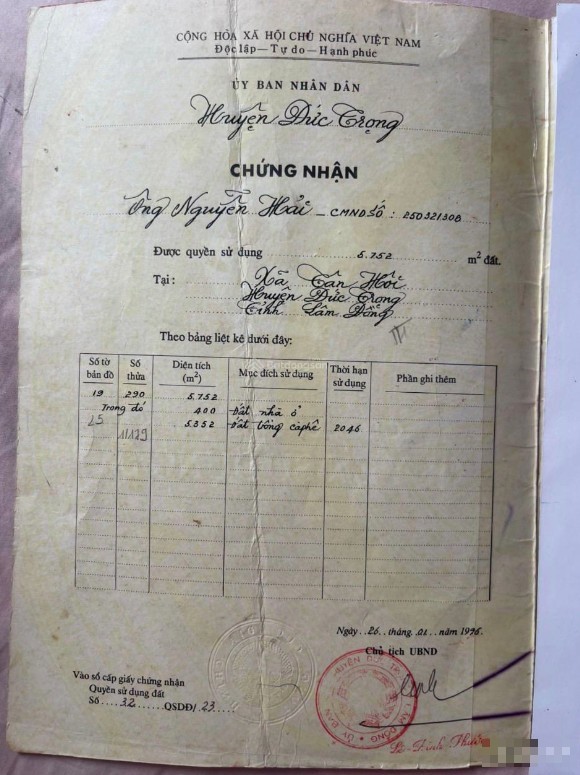 CỘNG HÒA XÃ HỘI CHỦ NGHĨA VIỆT NAM
Độc lập — Tự do — Hạnh phúc
ỦY BAN NHÂN DÂN
Huyện Đức Trọng
CHỨNG NHẬN
Ông Nguyễn Hải - CMND SỐ : 250321308
Được quyền sử dụng 5.752 m² đất.
Tại : Xã Tân Hội
Huyện Đức Trọng
Tỉnh Lâm Đồng
Theo bảng liệt kê dưới đây:
Số tờ bản đồ Số thửa Diện tích (m²) Mục đích sử dụng Thời hạn sử dụng Phần ghi thêm
19 290 5.752
Trong đó 400 Đất nhà ở
25 11179 5.352 Đất trồng càphê 2046
Ngày 26 tháng 01 năm 1996
Chủ tịch UBND
Vào sổ cấp giấy chứng nhận
Quyền sử dụng đất
Số 32 QSDĐ/ 23